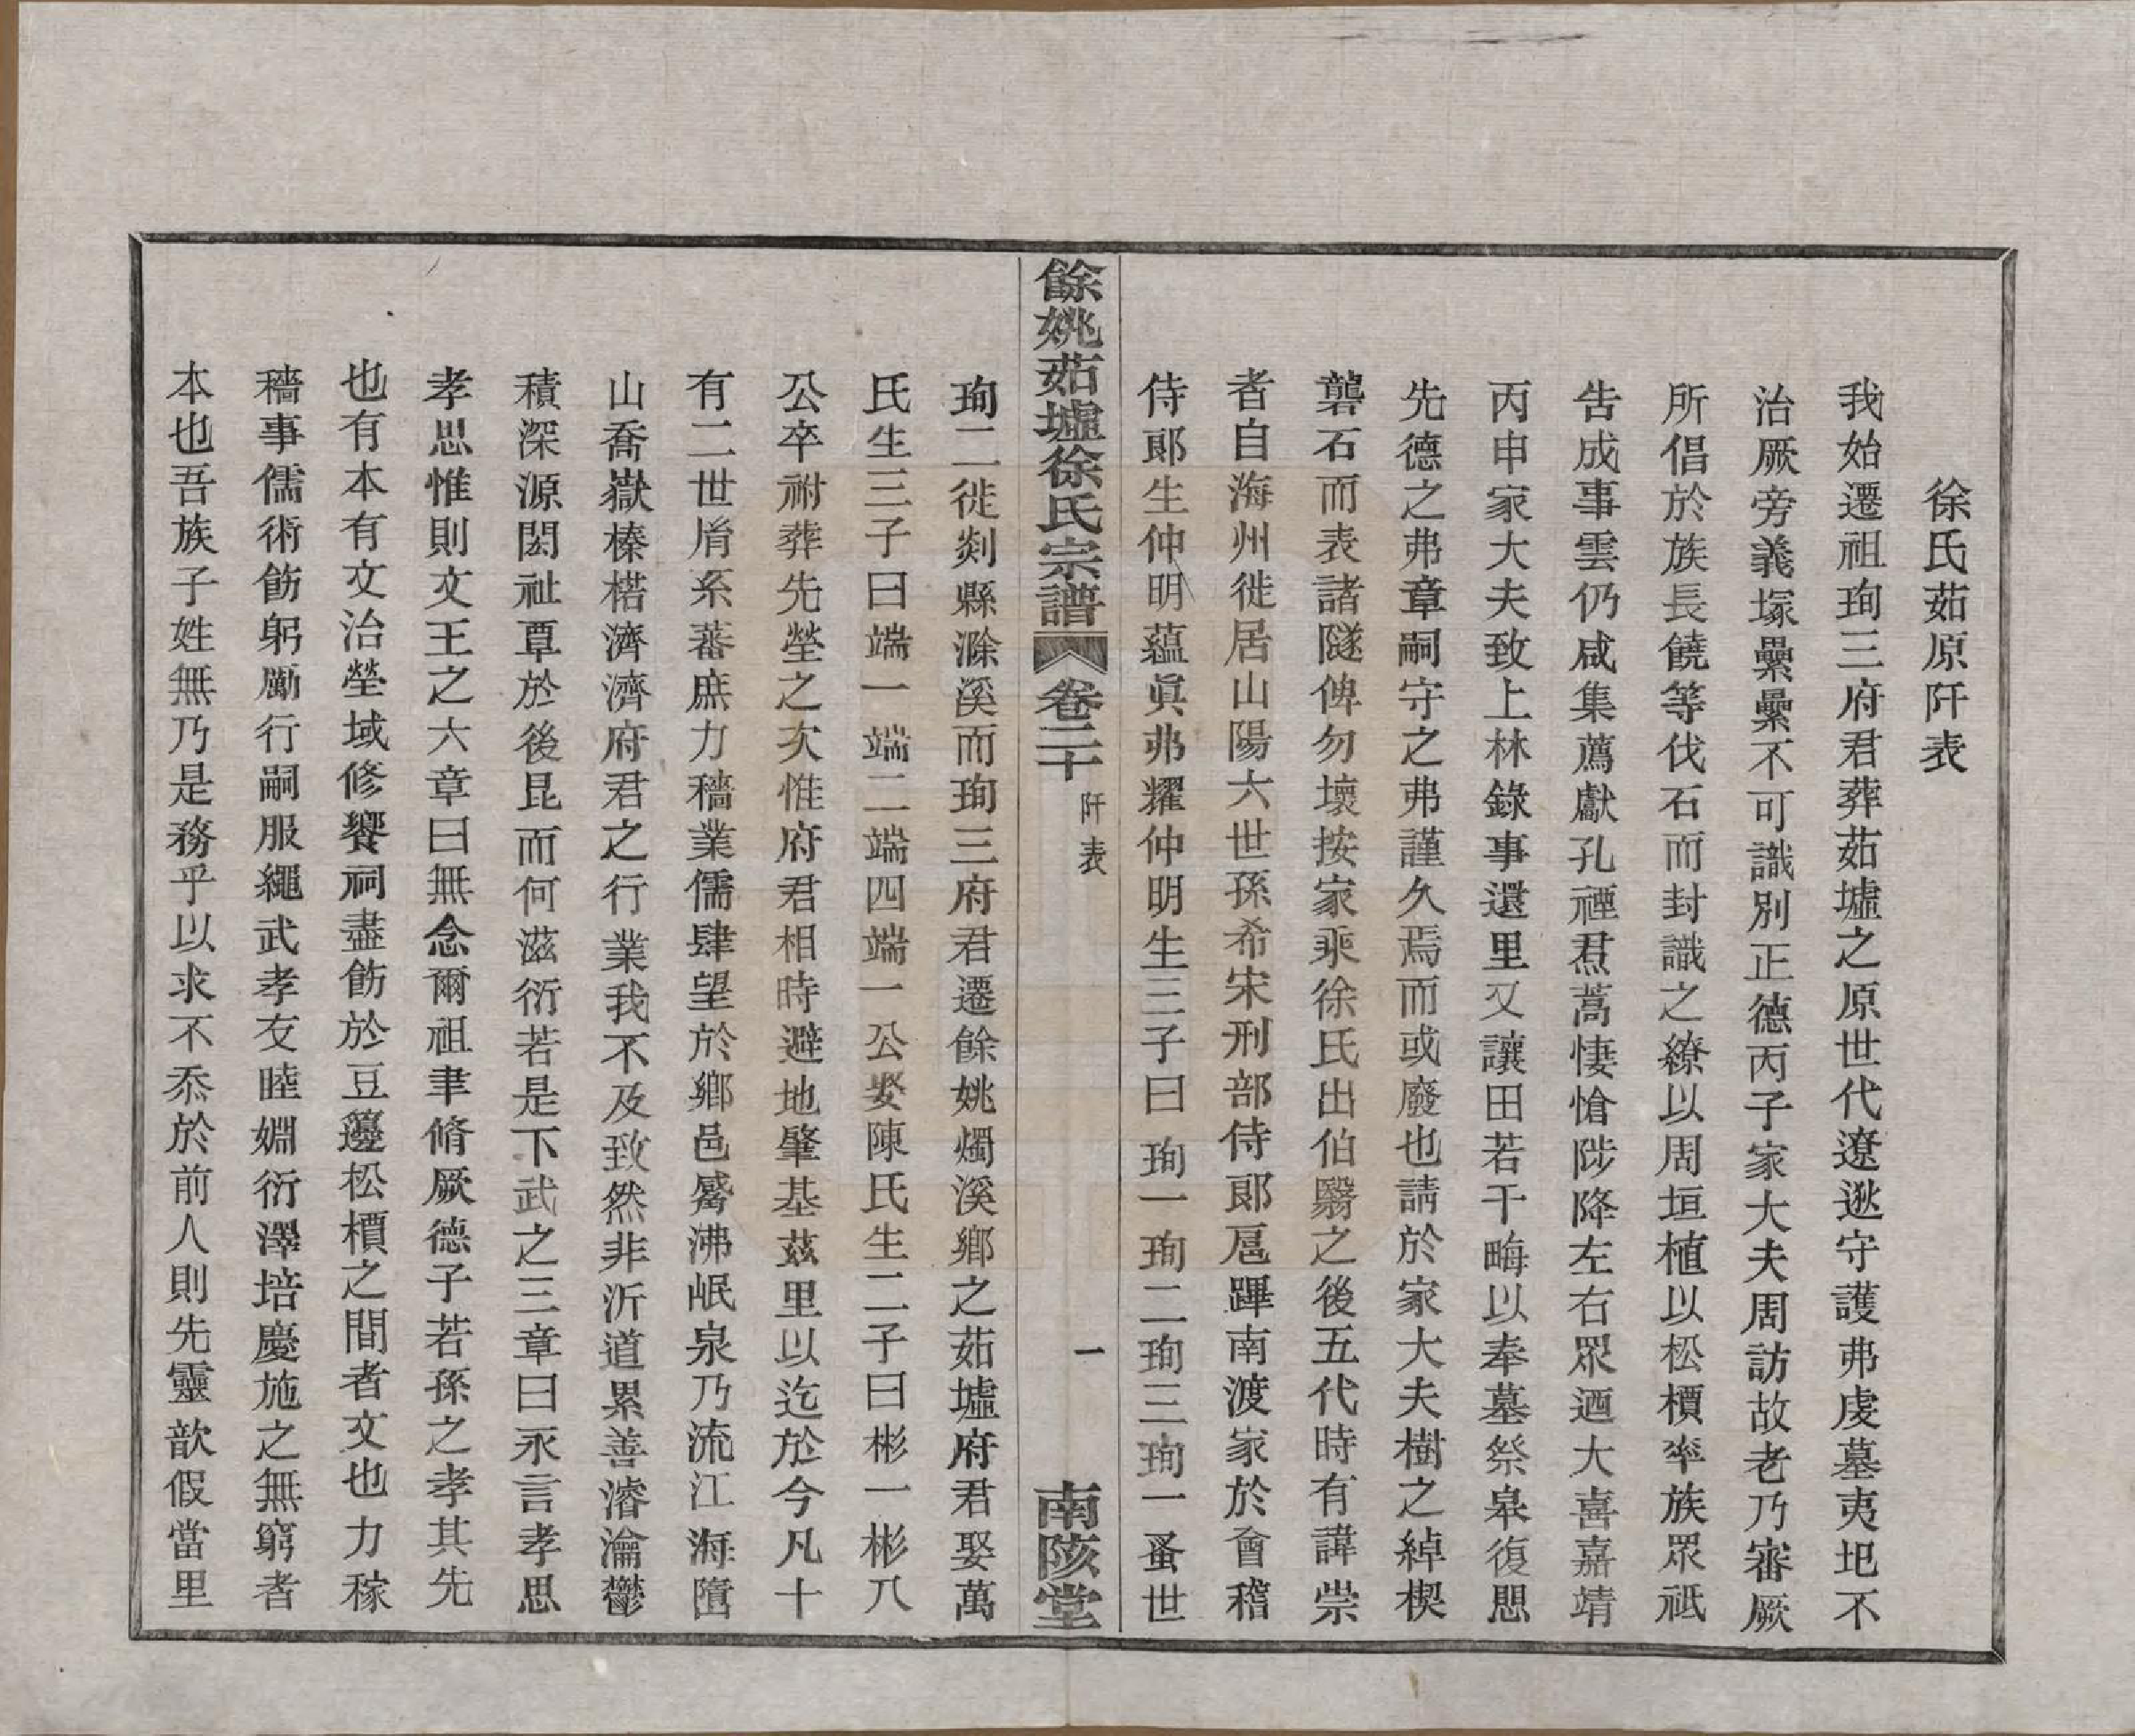 徐氏茹原阡表
我始遷祖珣三府君葬茹墟之原世代遼逖守護弗虔墓夷圯不
治厥旁義塚纍纍不可識別正德丙子家大夫周訪故老乃審厥
所倡於族長饒等伐石而封識之繚以周垣植以松檟率族眾祗
告成事雲仍咸集薦獻孔禋焄蒿悽愴陟降左右眾迺大喜嘉靖
丙申家大夫致上林錄事還里又讓田若干畮以奉墓祭皋復思
先德之弗章嗣守之弗謹久焉而或廢也請於家大夫樹之綽楔
礱石而表諸隧俾勿壞按家乘徐氏出伯翳之後五代時有諱崇
者自海州徙居山陽六世孫希宋刑部侍郎扈蹕南渡家於會稽
侍郎生仲明蘊眞弗耀仲明生三子曰珣一珣二珣三珣一蚤世
餘姚茹墟徐氏宗譜 卷二十 阡表 一 南陔堂
珣二徙剡縣滁溪而珣三府君遷餘姚燭溪鄉之茹墟府君娶萬
氏生三子曰端一端二端四端一公娶陳氏生二子曰彬一彬八
公卒祔葬先塋之次惟府君相時避地肇基茲里以迄於今凡十
有二世胤系蕃庶力穡業儒肆望於鄉邑觱沸岷泉乃流江海㟴
山喬嶽榛楛濟濟府君之行業我不及致然非沂道累善濬瀹鬱
積深源閎祉覃於後昆而何滋衍若是下武之三章曰永言孝思
孝思惟則文王之六章曰無念爾祖聿脩厥德子若孫之孝其先
也有本有文治塋域修饗祠盡飭於豆籩松檟之間者文也力稼
穡事儒術飭躬勵行嗣服繩武孝友睦婣衍澤培慶施之無窮者
本也吾族子姓無乃是務乎以求不忝於前人則先靈歆假當里